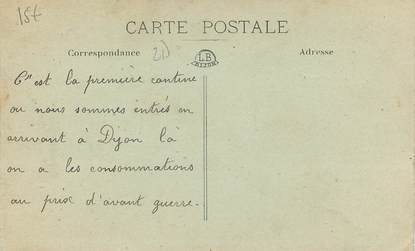 15t
CARTE POSTALE
Correspondance
21
LB
DIJON
Adresse
C'est la première cantine
ou nous sommes entrés en
arrivant à Dijon là
on a les consommations
au prix d'avant guerre.